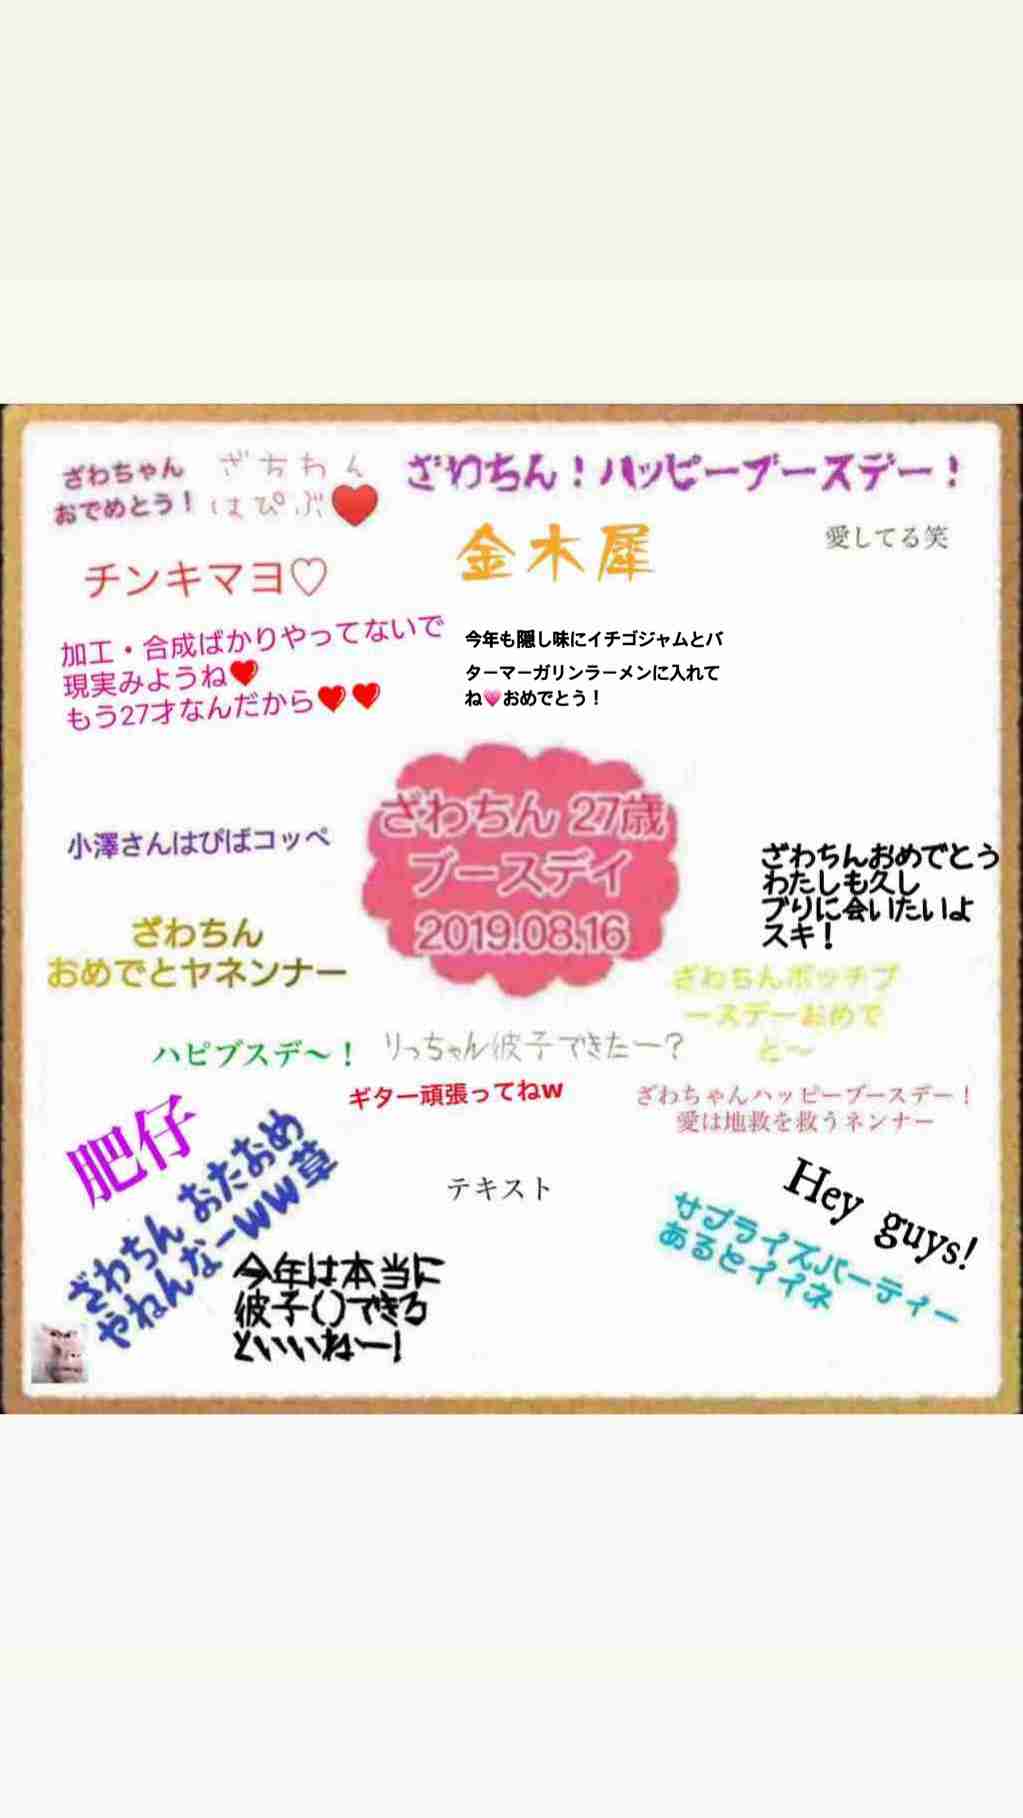 ざわちゃん
おでめとう！
ざちわん
はぴぶ❤
ざわちん！ハッピーブースデー！
金木犀
愛してる笑
チンキマヨ♡
加工・合成ばかりやってないで
現実みようね❤
もう27才なんだから❤❤
今年も隠し味にイチゴジャムとバ
ターマーガリンラーメンに入れて
ね💗おめでとう！
ざわちん 27歳
ブースデイ
2019.08.16
小澤さんはぴばコッペ
ざわちんおめでとう
わたしも久し
ブりに会いたいよ
スキ！
ざわちん
おめでとヤネンナー
ざわちんボッチブ
ースデーおめで
と〜
ハピブスデ〜！
りっちゃん彼子できたー？
ギター頑張ってねw
ざわちゃんハッピーブースデー！
愛は地救を救うネンナー
肥仔
ざわちん おたおめ
やねんなーww草
テキスト
Hey guys!
サプライズパーティー
あるとイイネ
今年は本当に
彼子()できる
といいねー!